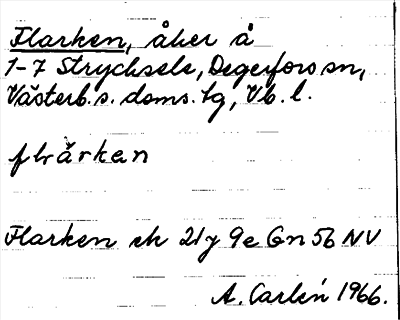 Flarken, åker å
1-7 Strycksele, Degerfors sn,
Västerb.s. doms. tg, Vb. l.
flárken
Flarken ek 21J 9e Gn 56 NV
A. Carlén 1966.